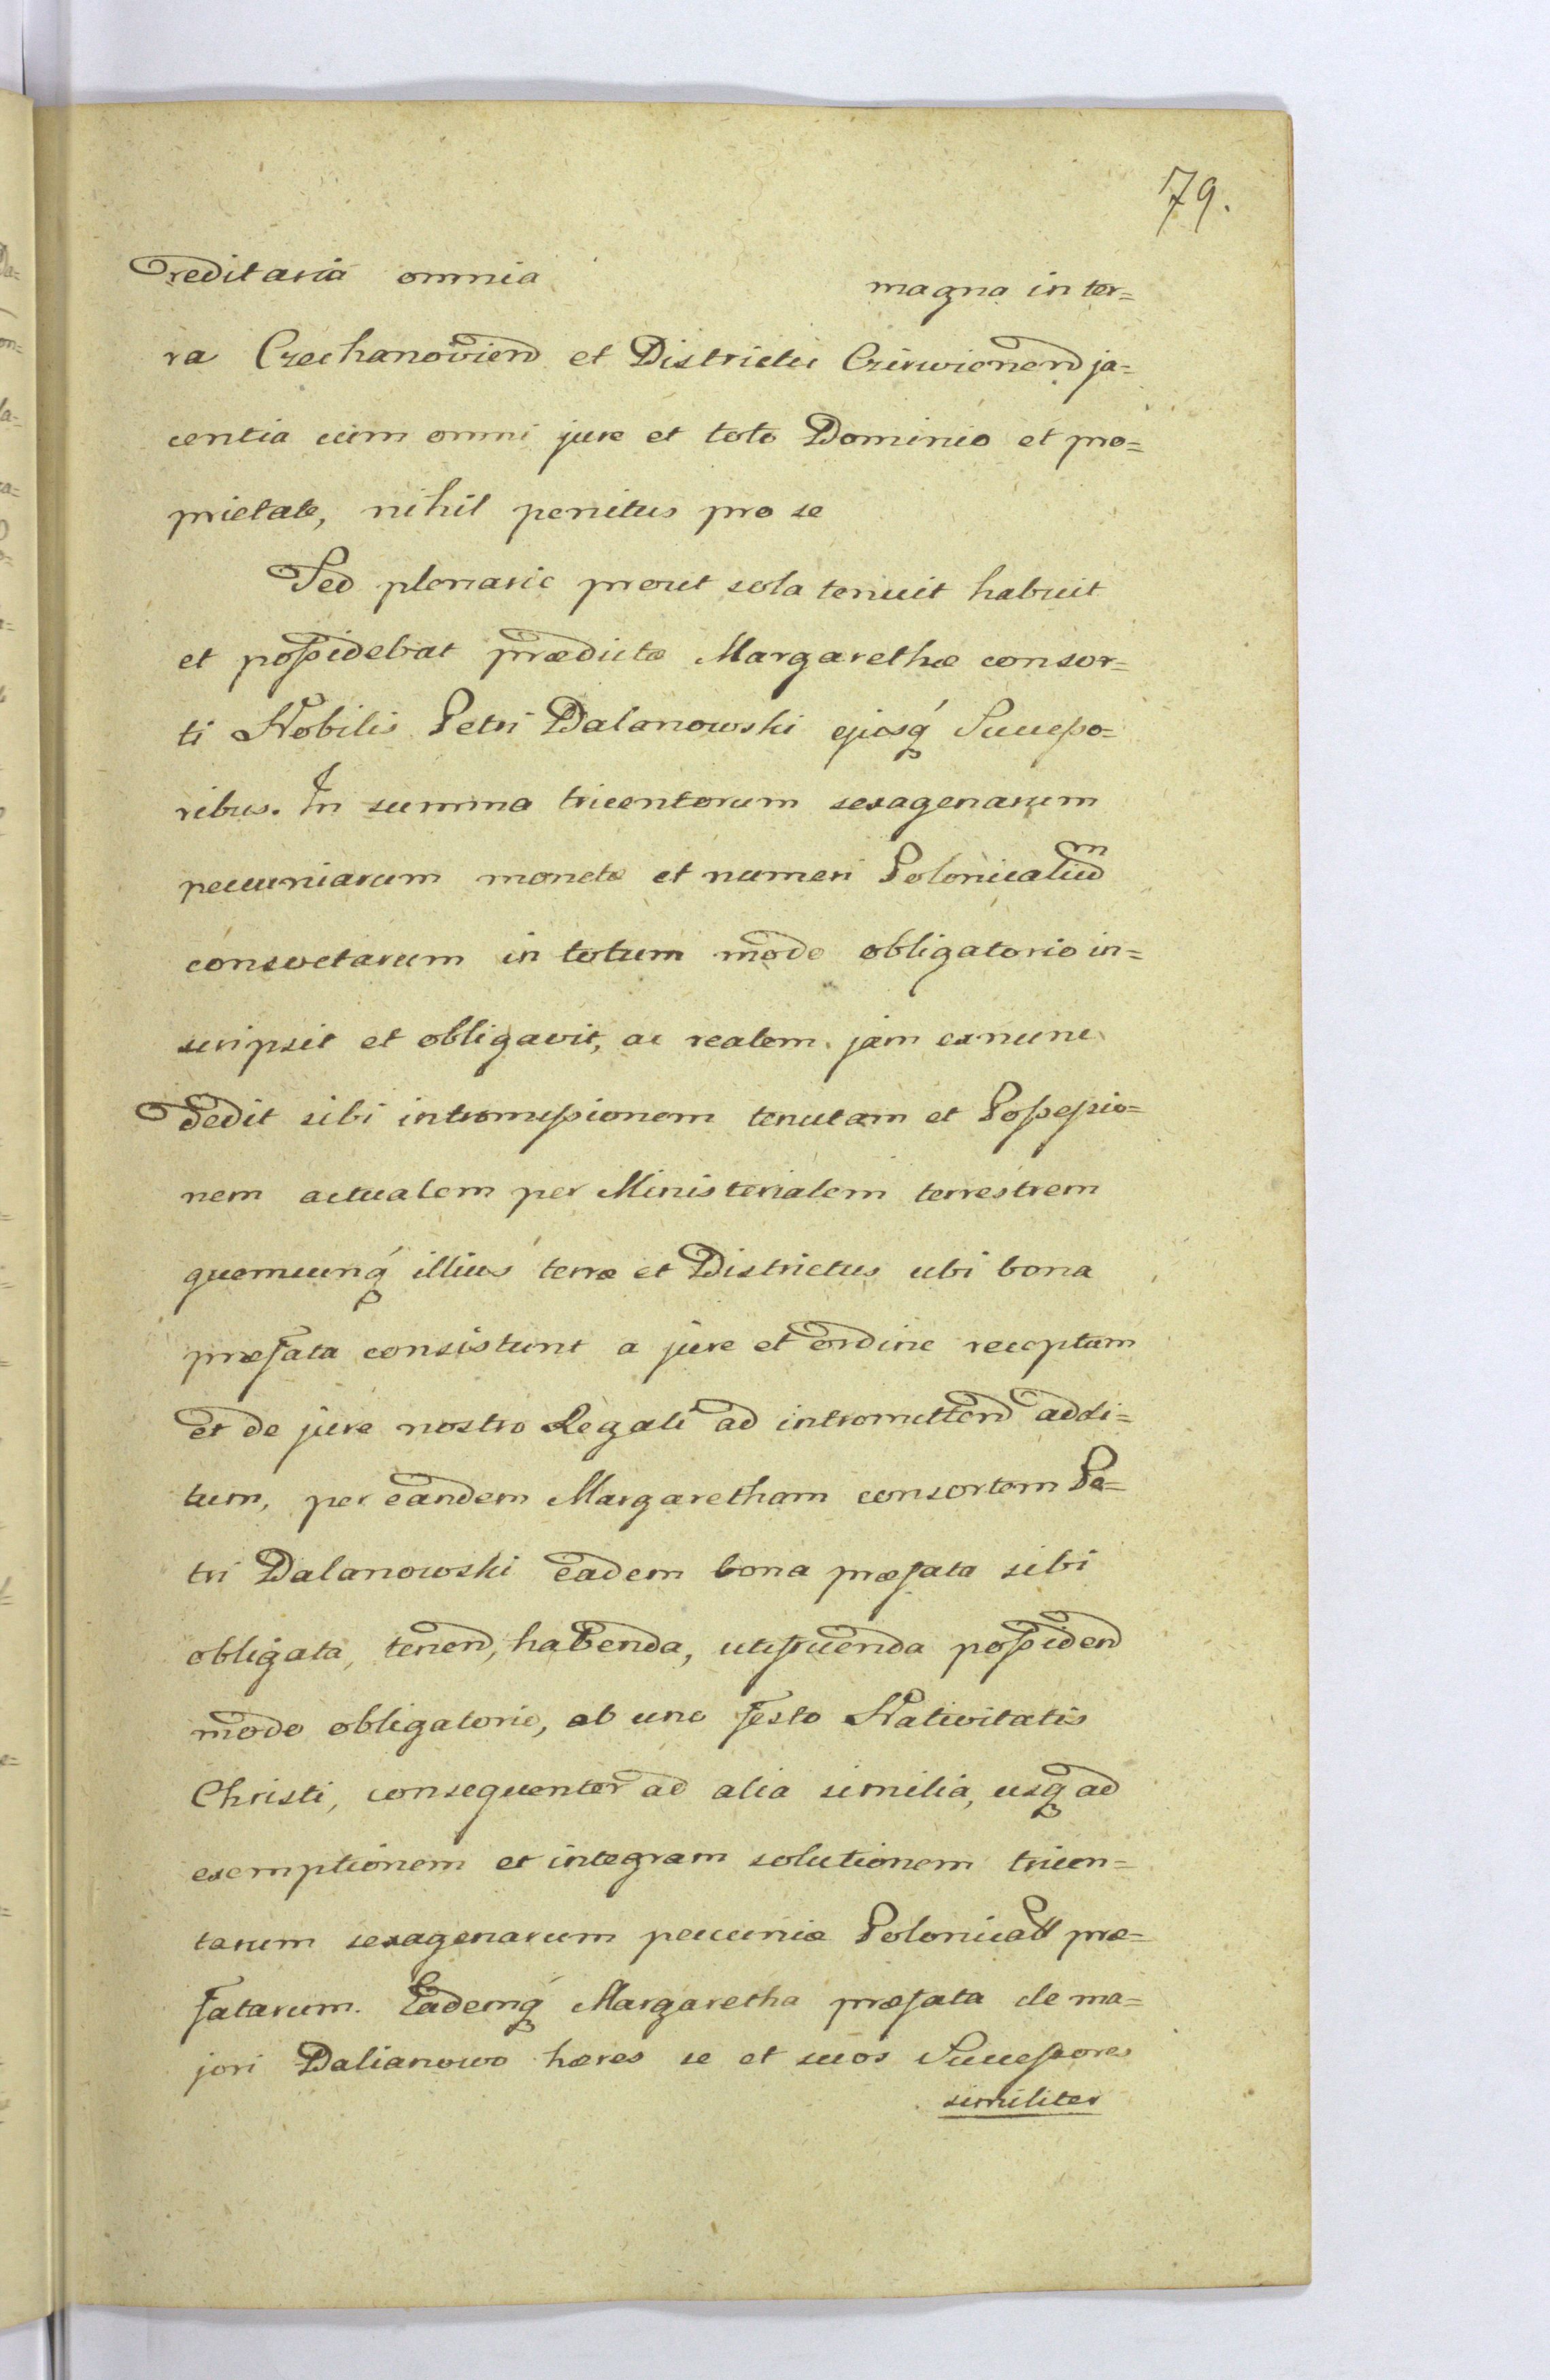 79.
reditaria omnia magna in ter=
ra Czechanoviend et Districtu Czirwienend ja=
centia cum omni jure et toto Dominio et pro=
prietate, nihil penitus pro se
Sed plenarie prout sola tenuit habuit
et possidebat prædictæ Margarethæ consor=
ti Nobilis Petri Dalanowski ejusq́ Successo=
ribus. In summa tricentorum sexagenarum
pecuniarum monetæ et numeri Polonicalium
consvetarum in totum modo obligatorio in=
scripsit et obligavit, ac realem jam exnunc
dedit sibi intromissionem tenutam et Possessio=
nem actualem per Ministerialem terrestrem
quemcunq́ illius terræ et Districtus ubi bona
præfata consistunt a jure et ordine receptum
et de jure nostro Regali ad intromittend addi=
tum, per eandem Margaretham consortem Pe=
tri Dalanowski eadem bona præfata sibi
obligata, tenend, habenda, utifruenda possidend
modo obligatorio, ab uno festo Nativitatis
Christi, consequenter ad alia similia, usq ad
exemptionem et integram solutionem tricen=
tarum sexagenarum pecuniæ Polonicall præ=
fatarum. Eademq́ Margaretha præfata de ma=
jori Dalianowo hæres se et suos Successores
similiter